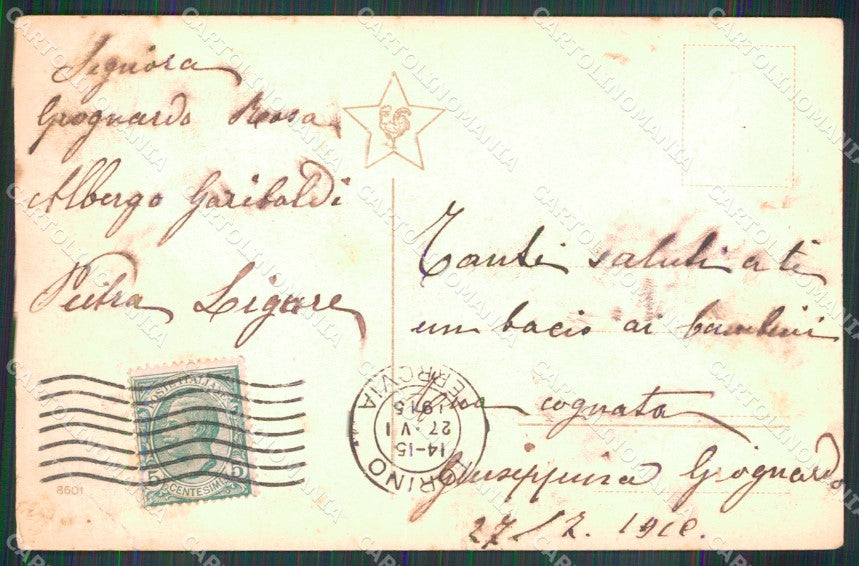 Signora
Grognardo Rosa
Albergo Garibaldi
Pietra Ligure
POSTE ITALIANE
5 5
CENTESIMI
8601
TORINO
FERROVIA
14-15
27·VI
1915
Tanti saluti a te
un bacio ai bambini
tua cognata
Giuseppina Grognardo
CARTOLINOMANIA